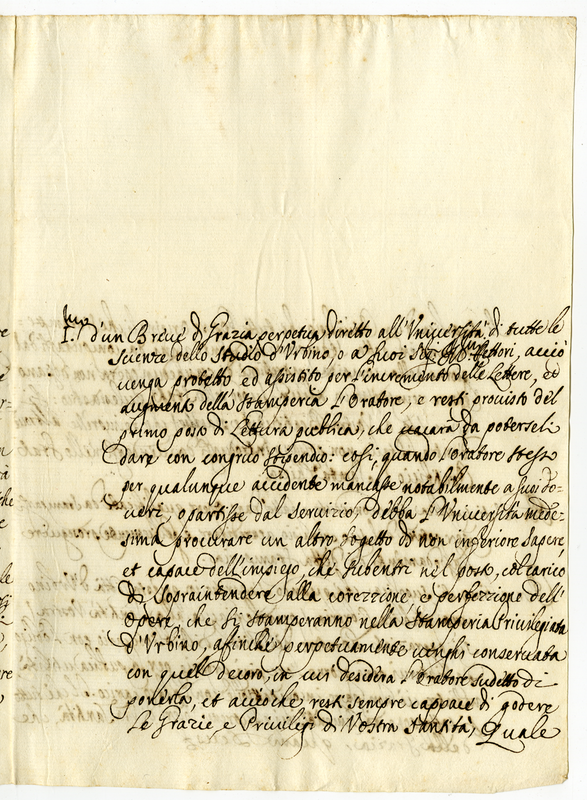 mo
I.° d'un Breve di Grazia perpetua diretto all'Università di tutte le
Scienze dello Studio d'Urbino, o a suoi Lettori, acciò
venga protetto ed assistito per l'incremento delle Lettere, ed
augment della Stamperia l'Oratore, e resti provisto del
primo posto di Lettura publica, che vacarà da poterseli
dare con congruo stipendio: così, quando l'Oratore stesso
per qualunque accidente mancasse notabilmente a suoi do-
veri, o partisse dal servizio, debba l'Università mede-
sima procurare un altro sogetto di non inferiore sapere
et capace dell'impiego, che subentri nel posto, col carico
di sopraintendere alla corezzione, e perfezzione dell'
opere, che si stamperanno nella Stamperia Privilegiata
d'Urbino, affinche perpetuamente venghi conservata
con quel decoro, in cui desidera l'Oratore sudetto di
ponerla, et acciòche resti sempre cappace di godere
le Grazie, e Privilegi di Vostra Santità, Quale